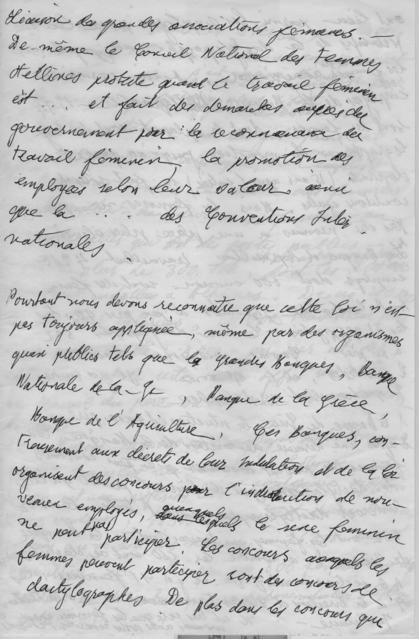 Liaison des grandes associations féminines. —
De même le Conseil National des Femmes
Hellènes proteste quand le travail féminin
est ... et fait des demarches auprès du
gouvernement pour la reconnaissance du
travail féminin, la promotion des
employées selon leur valeur, ainsi
que la .... des Conventions Inter-
nationales.
Pourtant nous devons reconnaître que cette loi n'est
pas toujours appliquée, même par des organismes
quasi publics tels que les grandes Banques, Banque
Nationale de la , Banque de la Grèce,
Banque de l'Agriculture. Ces Banques, con-
trairement aux décrets de leur et de la loi
organisent des concours pour l' de nou-
veaux employés, auxquels le sexe féminin
ne peut pas participer. Les concours auxquels les
femmes peuvent participer sont des concours de
dactylographes. De plus dans les concours que